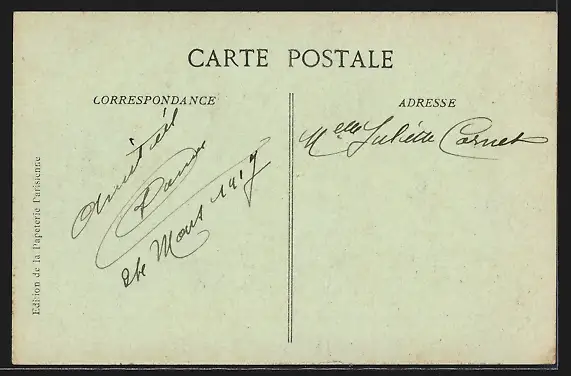 CARTE POSTALE
CORRESPONDANCE
Amitiés
Mars 1917
ADRESSE
Melle Juliette Cornet
Edition de la Papeterie Parisienne